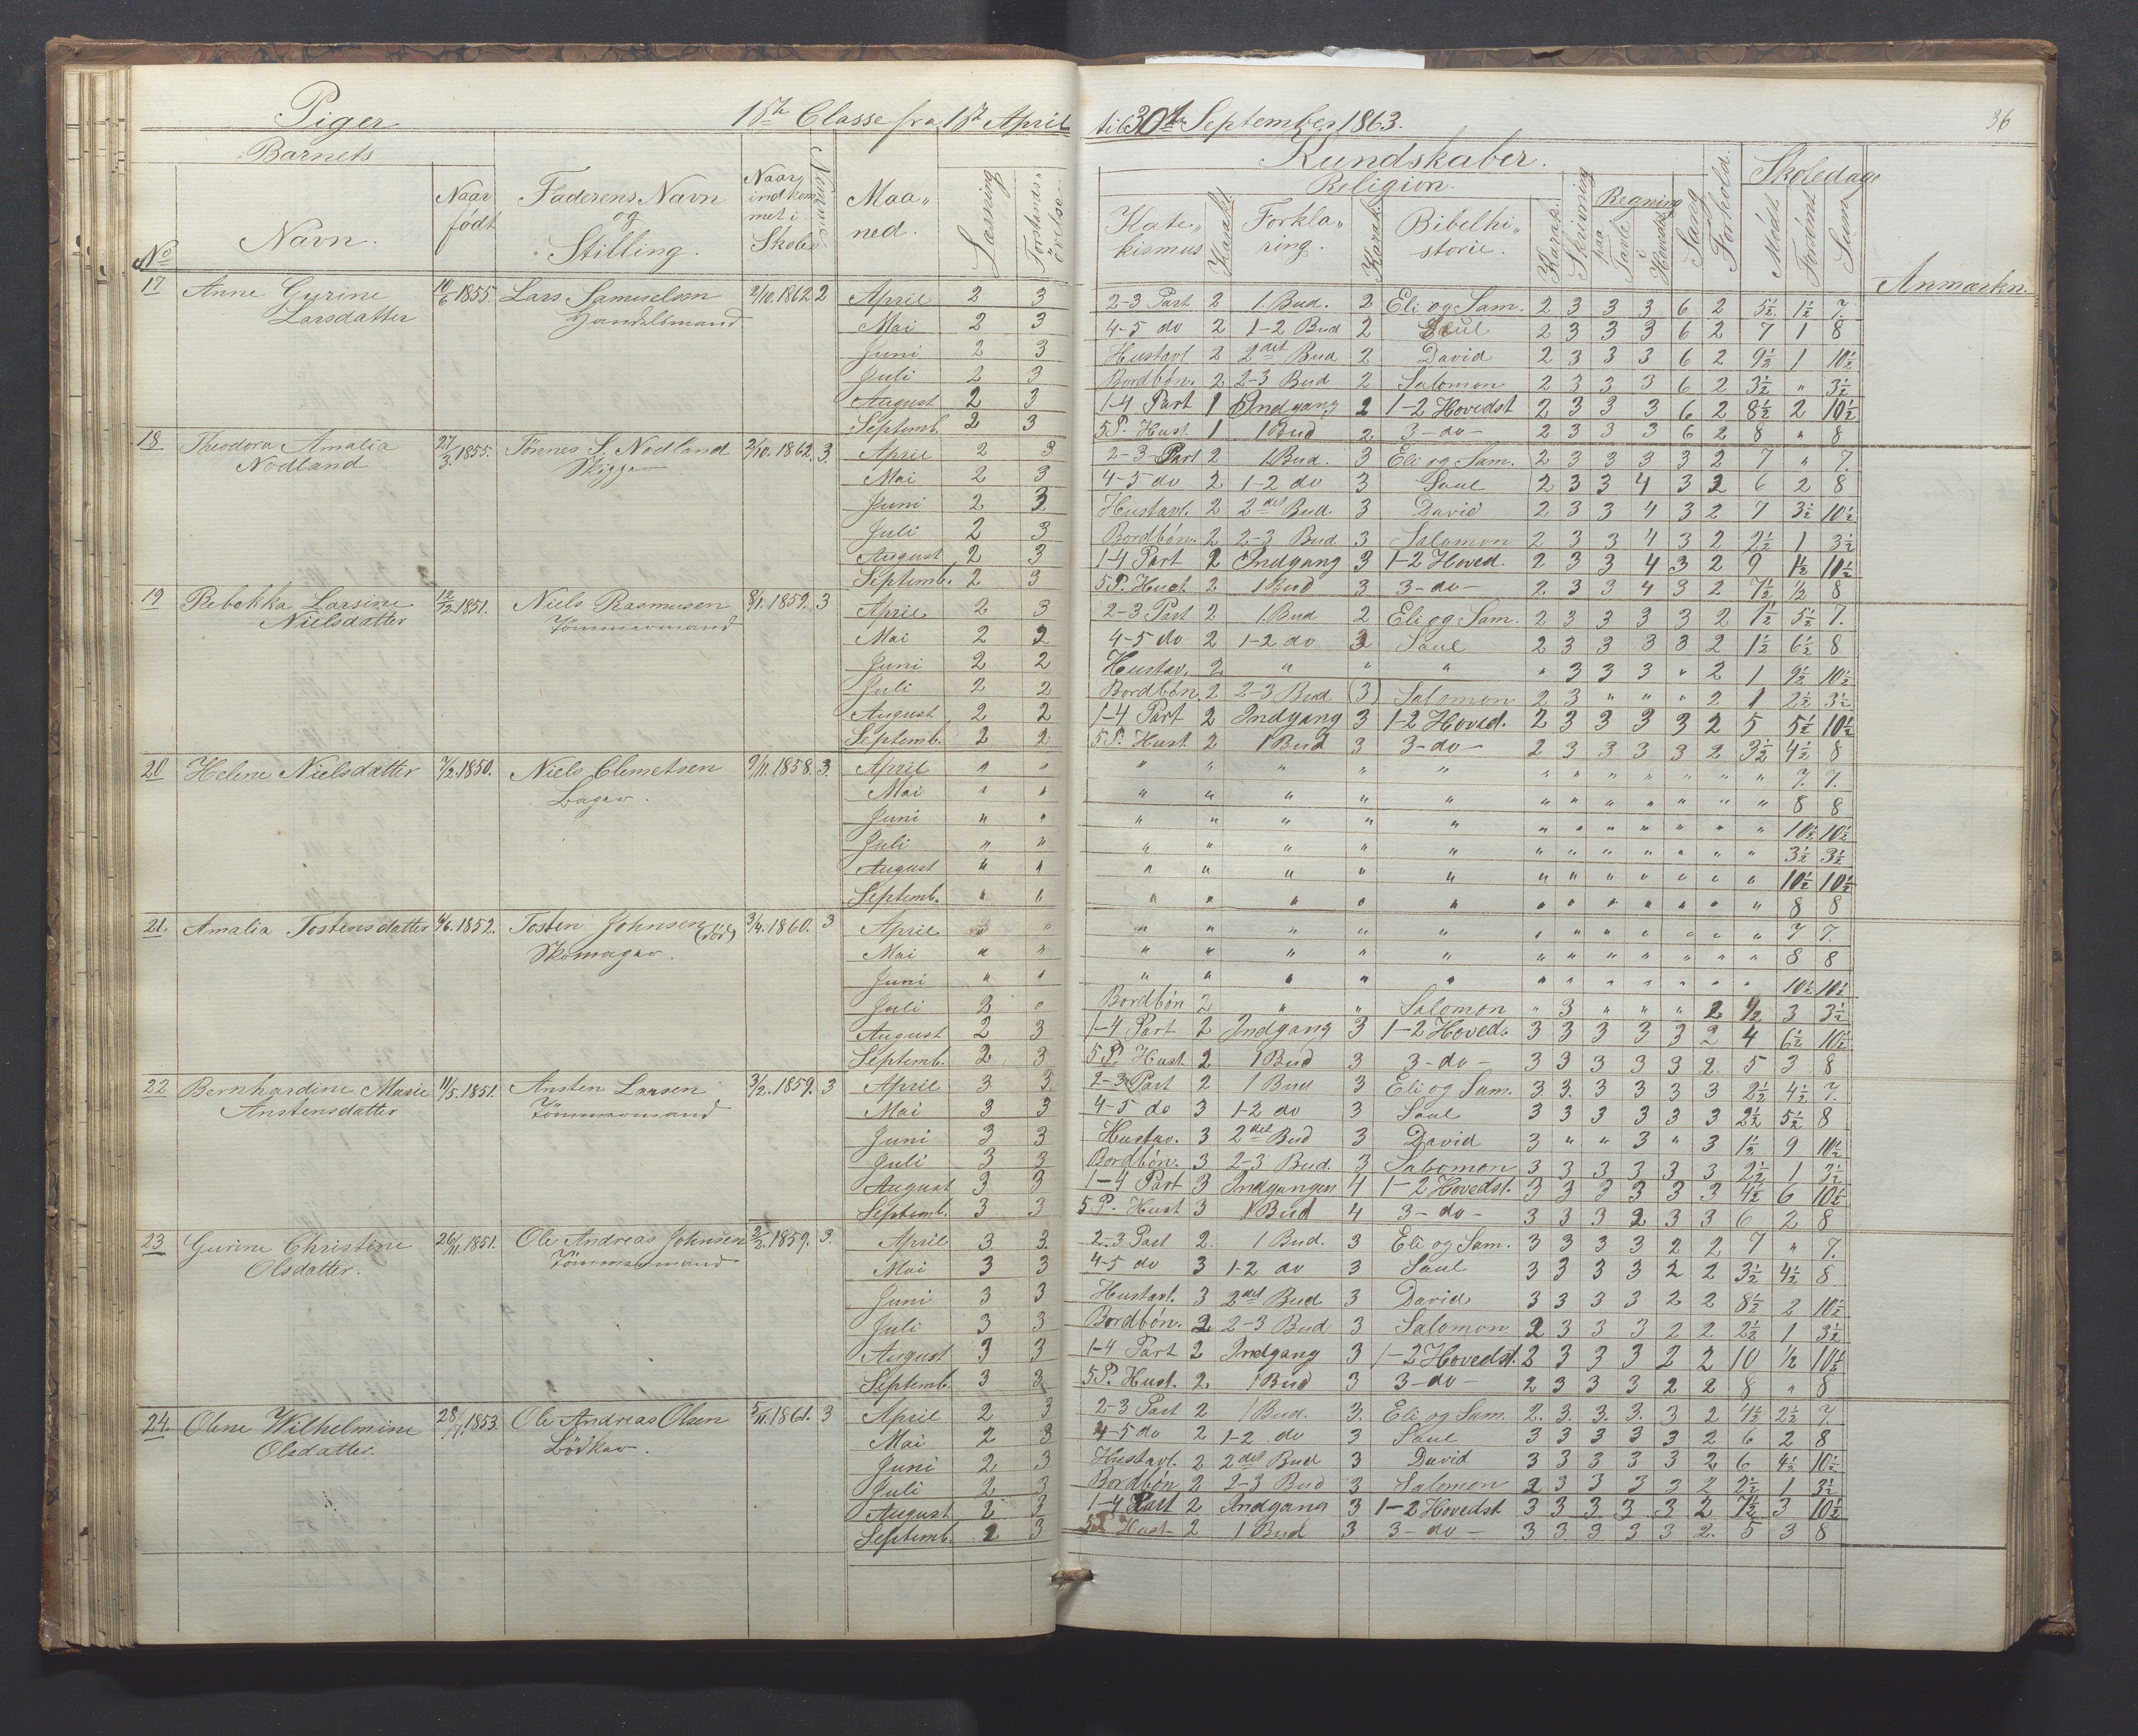 Piger 1ste Classe fra 1ste April til 30te September 1863. 36
Barnets
No Navn. Naar født Faderens Navn og Stilling. Naar indkommet i Skole Nummer Maaned. Læsning Forstandsøvelse.
Kundskaber. Skoledage
Religion. Regning
Katekismus Karakt. Forklaring. Karakt. Bibelhistorie. Karak. Skrivning paa Tavle i Hovedet Sang Forhold. Mødt Forsømt Sum Anmærkn.
17 Anne Gurine Larsdatter 10/6 1855. Lars Samuelsen Handelsmand 2/10. 1862 2
April 2 3 2-3 Part 2 1. Bud. 2 Eli og Sam. 2 3 3 3 6 2 5½ 1½ 7.
Mai 2 3 4-5 do 2 1-2 Bud 2 Saul 2 3 3 3 6 2 7 1 8
Juni 2 3 Hustavl 2 2det Bud 2 David 2 3 3 3 6 2 9½ 1 10½
Juli 2 3 Bordbøn. 2 2-3 Bud 2 Salomon 2 3 3 3 6 2 3½ " 3½
August 2 3 1-4 Part 1 Indgang 2 1-2 Hovedst 2 3 3 3 6 2 8½ 2 10½
Septemb. 2 3 5 P. Hust. 1 1 Bud 2 3-do- 2 3 3 3 6 2 8 " 8
18 Theodora Amalia Nodland 27/3. 1855. Tønnes S. Nodland Skipper 2/10. 1862. 3
April 2 3 2-3 Part 2 1. Bud. 3 Eli og Sam. 2 3 3 3 3 2 7 " 7.
Mai 2 3 4-5 do 2 1-2 do 3 Saul 2 3 3 4 3 2 6 2 8
Juni 2 3 Hustavl. 2 2det Bud 3 David 2 3 3 4 3 2 7 3½ 10½
Juli 2 3 Bordbøn. 2 2-3 Bud 3 Salomon 2 3 3 4 3 2 2½ 1 3½
August 2 3 1-4 Part 2 Indgang 3 1-2 Hoved. 2 3 3 4 3 2 9 1½ 10½
Septemb. 2 3 5 P. Hust. 2 1 Bud 3 3-do- 2 3 3 4 3 2 7½ ½ 8
19 Rebekka Larsine Nielsdatter 12/12. 1851. Niels Rasmusen Tømmermand 8/1. 1859. 3
April 2 3 2-3 Part 2 1. Bud 2 Eli og Sam. 2 3 3 3 3 2 1½ 5½ 7.
Mai 2 2 4-5 do 2 1-2 do 3 Saul 2 3 3 3 3 2 1½ 6½ 8
Juni 2 2 Hustav. 2 " " " " 3 3 3 " 2 1 9½ 10½
Juli 2 2 Bordbøn. 2 2-3 Bud (3) Salomon 2 3 " " " 2 1 2½ 3½
August 2 2 1-4 Part 2 Indgang 3 1-2 Hoved. 2 3 3 3 3 2 5 5½ 10½
Septemb. 2 2 5 P. Hust 2 1 Bud 3 3-do- 2 3 3 3 3 2 3½ 4½ 8
20 Helene Nielsdatter 7/2. 1850. Niels Clemetsen Bager. 9/11. 1858. 3.
April " " " " " " " " " " " " " " 7. 7.
Mai " " " " " " " " " " " " " " 8 8
Juni " " " " " " " " " " " " " " 10½ 10½
Juli " " " " " " " " " " " " " " 3½ 3½
August " " " " " " " " " " " " " " 10½ 10½
Septemb. " " " " " " " " " " " " " " 8 8
21. Amalia Tostensdatter 6/6. 1852. Tosten Johnsen (død) Skomager. 3/4. 1860. 3
April " " " " " " " " " " " " " " 7 7.
Mai " " " " " " " " " " " " " " 8 8
Juni " " " " " " " " " " " " " " 10½ 10½
Juli 2 " Bordbøn 2 " " Salomon " 3 " " " 2 ½ 3 3½
August 2 3 1-4 Part 2 Indgang 3 1-2 Hoved. 3 3 3 3 3 2 4 6½ 10½
Septemb. 2 3 5 P. Hust. 2 1 Bud 3 3-do- 3 3 3 3 3 2 5 3 8
22 Bernhardine Marie Anstensdatter 11/5. 1851. Ansten Larsen Tømmermand 3/2. 1859. 3
April 3 3 2-3 Part 2 1 Bud 3 Eli og Sam. 3. 3. 3 3 3 3 2½ 4½ 7.
Mai 3 3 4-5 do 3 1-2 do 3 Saul 3 3 3 3 3 3 2½ 5½ 8
Juni 3 3 Hustav. 3 2det Bud 3 David 3 " " 3 " 3 1½ 9 10½
Juli 3 3 Bordbøn. 3 2-3 Bud. 3 Salomon 3 3 3 3 3 3 2½ 1 3½
August 3 3 1-4 Part 3 Indgangen 4 1-2 Hovedst. 3 3 3 3 3 3 4½ 6 10½
Septemb. 3 3 5 P. Hust 3 1 Bud 4 3-do- 3 3 3 2 3 3 6 2 8
23 Gurine Christine Olsdatter. 26/11. 1851. Ole Andreas Johnsen Tømmermand 2/2. 1859. 3.
April 3 3 2-3 Part 2. 1 Bud. 3 Eli og Sam. 3 3 3 3 2 2 7 " 7.
Mai 3 3 4-5 do 3 1-2 do 3 Saul 3 3 3 3 2 2 3½ 4½ 8
Juni 3 3 Hustavl. 3 2det Bud 3 David 3 3 3 3 2 2 8½ 2 10½
Juli 3 3 Bordbøn. 2 2-3 Bud 3 Salomon 2 3 3 3 2 2 2½ 1 3½
August 3 3 1-4 Part 2 Indgang 3 1-2 Hovedst. 2 3 3 3 2 2 10 ½ 10½
Septemb. 3 3 5 P. Hust. 2. 1 Bud 3 3-do- 2 3 3 3 2 2 8 " 8
24. Olene Wilhelmine Olsdatter. 28/7. 1853. Ole Andreas Olsen Bödker. 5/11. 1861. 3
April 2 3 2-3 Part 2 1 Bud. 3. Eli og Sam. 2. 3. 3. 3. 3 2 4½ 2½ 7.
Mai 2 3 4-5 do 2 1-2 do 3 Saul 3 3 3 3 3 2 6 2 8
Juni 2 3 Hustavl. 2 2det Bud 3 David 3 3 3 3 3 2 6 4½ 10½
Juli 2 3 Bordbøn 2 2-3 Bud 3 Salomon 2 3 3 3 3 2 2½ 1 3½
August 2 3 1-4 Part 2 Indgang 3 1-2 Hovedst 3 3 3 3 3 2 7½ 3 10½
Septemb. 2 3 5 P Hust. 2 1 Bud 3 3-do- 3 3 3 3 3 2. 5 3 8